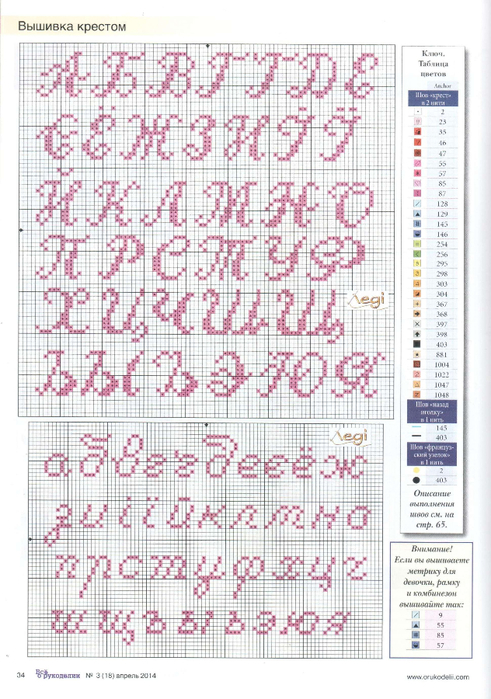 Вышивка крестом
А Б В Г Ґ Д Е
Є Ё Ж З И І Ї
Й К Л М Н О
П Р С Т У Ф
Х Ц Ч Ш Щ
Ъ Ы Ь Э Ю Я
Леді
а б в г ґ д е є ё ж
з и і ї й к л м н о
п р с т у ф х ц ч
ш щ ъ ы ь э ю я
Леді
Ключ.
Таблица
цветов
Anchor
Шов «крест»
в 2 нити
2
23
35
46
47
55
57
85
87
128
129
145
146
254
256
295
298
303
304
367
368
397
398
403
881
1004
1022
1047
1048
Шов «назад
иголку»
в 1 нить
145
403
Шов «француз-
ский узелок»
в 1 нить
2
403
Описание
выполнения
швов см. на
стр. 65.
Внимание!
Если вы вышиваете
метрику для
девочки, рамку
и комбинезон
вышивайте так:
9
55
85
57
34 Всё о рукоделии № 3 (18) апрель 2014
www.orukodelii.com